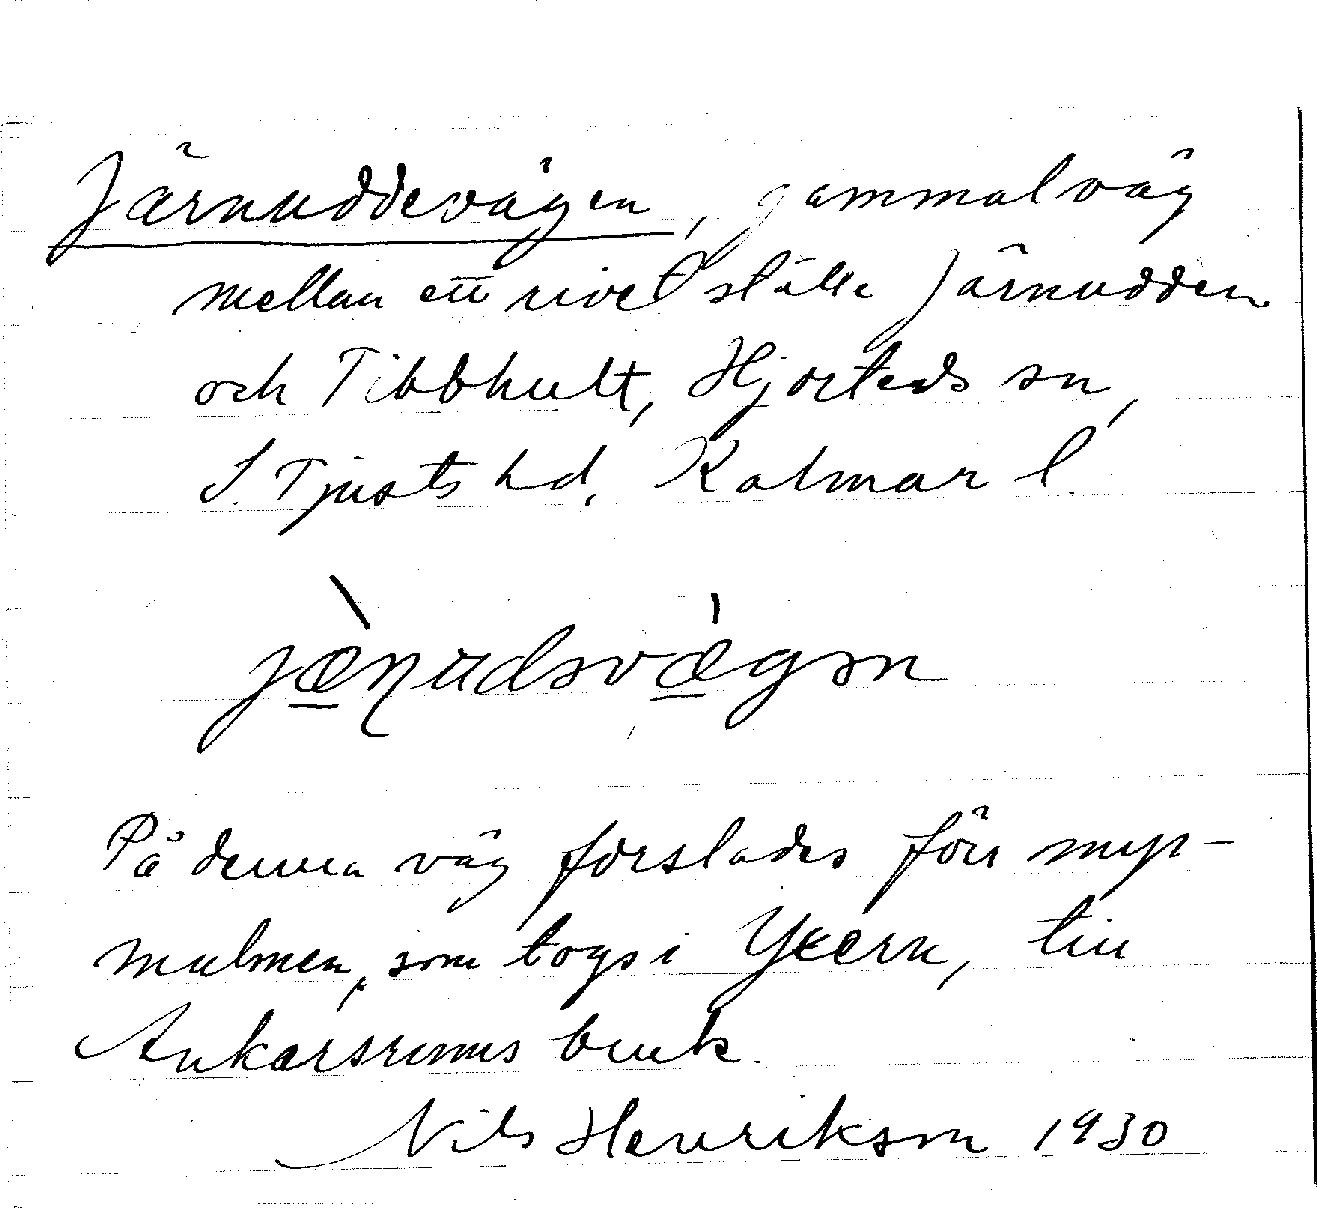 Järnuddevägen, gammal väg
mellan ett rivet ställe Järnudden
och Tibbhult, Hjorteds sn,
S. Tjusts hd. Kalmar l.
jæɳudsvægən
På denna väg forslades förr myr-
malmen, som togs i Yxern, till
Ankarsrums bruk.
Nils Henrikson 1930